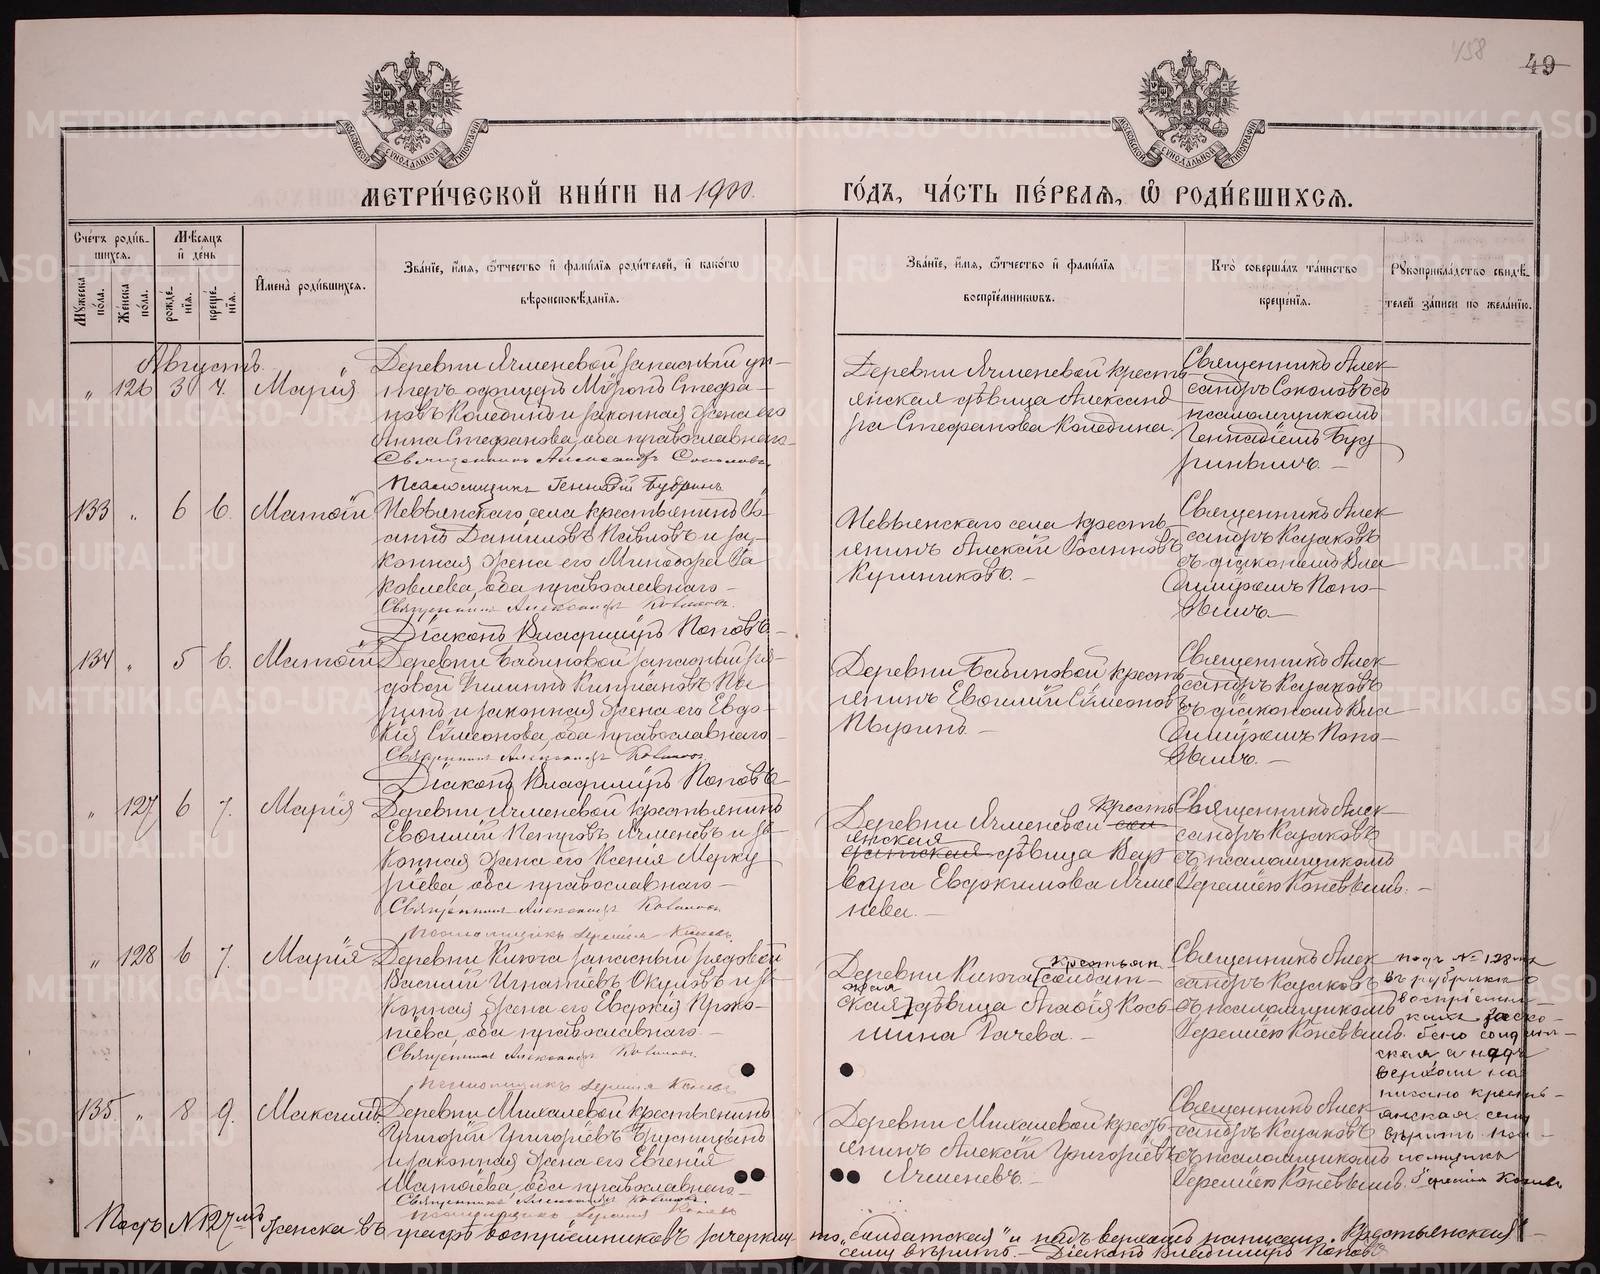 458
49
МЕТРИ́ЧЕСКОЙ КНИ́ГИ НА 1900
ГО́ДЪ, ЧА́СТЬ ПЕ́РВАѦ, Ѡ҆ РОДИ́ВШИХСѦ.
Сче́тъ роди́в-
шихсѧ.
Мѣсѧцъ
и де́нь
Мꙋжеска по́ла.
Женска по́ла.
рожде́-нїѧ.
креще́-нїѧ.
И҆мена̀ роди́вшихсѧ.
Зва́нїе, и҆́мѧ, ѻ҆́тчество и фами́лїѧ роди́телей, и како́гѡ
вѣроисповѣ́данїѧ.
Зва́нїе, и҆́мѧ, ѻ҆́тчество и фами́лїѧ
воспрїе́мниковъ.
Кто̀ соверша́лъ та́инство
креще́нїѧ.
Рꙋкоприкла́дство свидѣ́-
телей за́писи по жела́нїю.
Августъ.
" 126 3 7. Марія
Деревни Ячменевой запасный ун-
теръ офицеръ Мѵронъ Стефа-
новъ Колединъ и законная жена его
Анна Стефанова, оба православнаго
Священникъ Александръ Соколовъ
Псаломщикъ Геннадій Будринъ
Деревни Ячменевой кресть-
янская дѣвица Александ
ра Стефанова Коледина.
Священникъ Алек-
сандръ Соколовъ съ
псаломщикомъ
Геннадіемъ Буд
ринымъ. —
133 " 6 6. Матѳій
Невьянскаго села крестьянинъ Іо-
аннъ Даніиловъ Павловъ и за-
конная жена его Минодора Іа
ковлева, оба православнаго —
Священникъ Александръ Казаковъ.
Діаконъ Владиміръ Поповъ
Невьянскаго села кресть-
янинъ Алексій Іоанновъ
Куриниковъ. —
Священникъ Алек-
сандръ Казаковъ
съ діакономъ Вла
диміромъ Попо-
вымъ. —
134 " 5 6. Матѳій
Деревни Бабиновой запасный ря-
довой Филиппъ Кипріановъ Пы
ринъ и законная жена его Евдо-
кія Сѵмеонова, оба православнаго —
Священникъ Александръ Казаковъ
Діаконъ Владиміръ Поповъ
Деревни Бабиновой кресть-
янинъ Евѳимій Сѵмеонов
Пыринъ. —
Священникъ Алек-
сандръ Казаковъ
съ діакономъ Вла-
диміромъ Попо-
вымъ. —
" 127 6 7. Марія
Деревни Ячменевой крестьянинъ
Евѳимій Петровъ Ячменевъ и за-
конная жена его Ксенія Мерку
ріева, оба православнаго —
Священникъ Александръ Казаковъ
псаломщикъ Іеремія Коневъ.
кресть
Деревни Ячменевой сол
янская
датская дѣвица Вар
вара Евдокимова Ячме
нева. —
Священникъ Алек-
сандръ Казаковъ
съ псаломщикомъ
Іереміею Коневымъ. —
" 128 6 7. Марія
Деревни Ключа запасный рядовой
Василій Игнатіевъ Окуловъ и за-
конная жена его Евдокія Проко-
піева, оба православнаго —
Священникъ Александръ Казаковъ
псаломщикъ Іеремія Коневъ
крестьян
Деревни Ключа [солдат-
ская
ская] дѣвица Агаѳія Кось
мина Гачева. —
Священникъ Алек-
сандръ Казаковъ
съ псаломщикомъ
Іереміею Коневымъ.
подъ № 128мъ
въ рубрикѣ о
воспріемни-
кахъ заско-
бено солдат-
ская, а надъ
верхомъ на
писано кресть-
янская сему
вѣрить пса-
ломщикъ
Іеремія Коневъ
135. " 8 9. Максимъ
Деревни Михалевой крестьянинъ
Григорій Григоріевъ Брусницынъ
и законная жена его Евгенія
Матѳіева, оба православнаго —
Священникъ Александръ Казаковъ
псаломщикъ Іеремія Коневъ
Деревни Михалевой кресть-
янинъ Алексій Григоріевъ
Ячменевъ. —
Священникъ Алек-
сандръ Казаковъ
съ псаломщикомъ
Іереміею Коневымъ.
Подъ № 127мъ женска въ графѣ воспріемниковъ зачеркнуто „солдатская" и надъ верхомъ написано: Крестьянская
сему вѣрить. — Діаконъ Владиміръ Поповъ